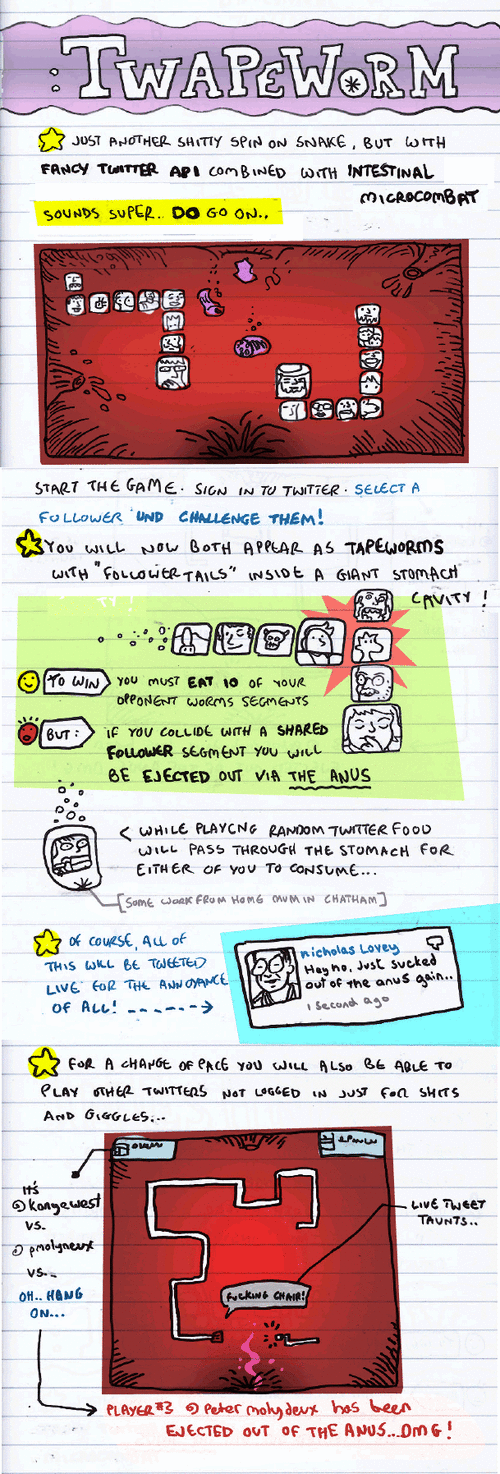 : TWAPEWORM
JUST ANOTHER SHITTY SPIN ON SNAKE, BUT WITH
FANCY TWITTER API COMBINED WITH INTESTINAL
MICROCOMBAT
SOUNDS SUPER.. DO GO ON..
START THE GAME. SIGN IN TO TWITTER. SELECT A
FOLLOWER UND CHALLENGE THEM!
YOU WILL NOW BOTH APPEAR AS TAPEWORMS
WITH "FOLLOWER TAILS" INSIDE A GIANT STOMACH
CAVITY!
TO WIN
YOU MUST EAT 10 OF YOUR
OPPONENT WORMS SEGMENTS
BUT:
IF YOU COLLIDE WITH A SHARED
FOLLOWER SEGMENT YOU WILL
BE EJECTED OUT VIA THE ANUS
< WHILE PLAYCNG RANDOM TWITTER FOOD
WILL PASS THROUGH THE STOMACH FOR
EITHER OF YOU TO CONSUME...
[SOME WORK FROM HOME MUM IN CHATHAM]
OF COURSE, ALL OF
THIS WILL BE TWEETED
LIVE FOR THE ANNOYANCE
OF ALL!
nicholas Lovey
Hey ho. Just sucked
out of the anus again..
1 second ago
FOR A CHANGE OF PACE YOU WILL ALSO BE ABLE TO
PLAY OTHER TWITTERS NOT LOGGED IN JUST FOR SHITS
AND GIGGLES...
IT'S
@kanyewest
VS.
@pmolyneux
VS..
OH.. HANG
ON...
LIVE TWEET
TAUNTS..
FUCKING CHAIR!
PLAYER #3 @Petermolydeux has been
EJECTED OUT OF THE ANUS...OMG!